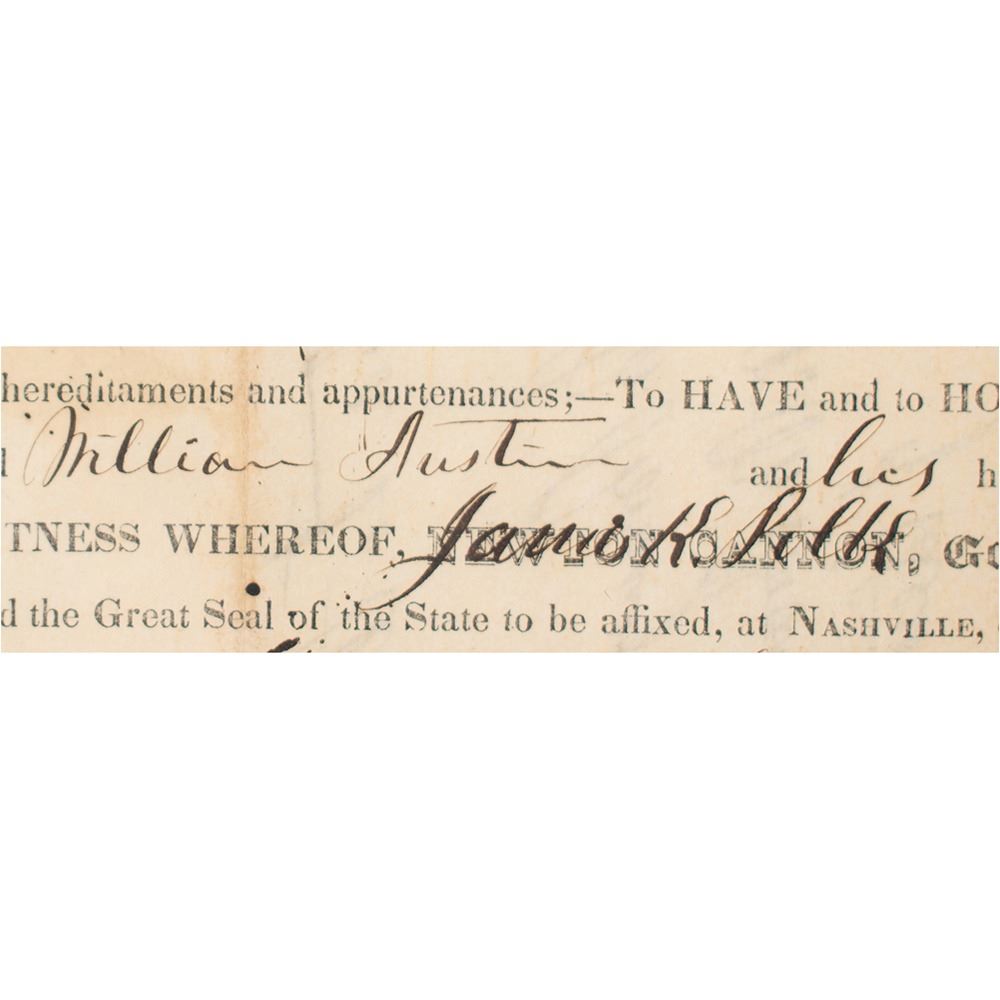 hereditaments and appurtenances;—To HAVE and to HO
William Austin and his h
TNESS WHEREOF, NEWTON CANNON, James K. Polk Go
d the Great Seal of the State to be affixed, at NASHVILLE,